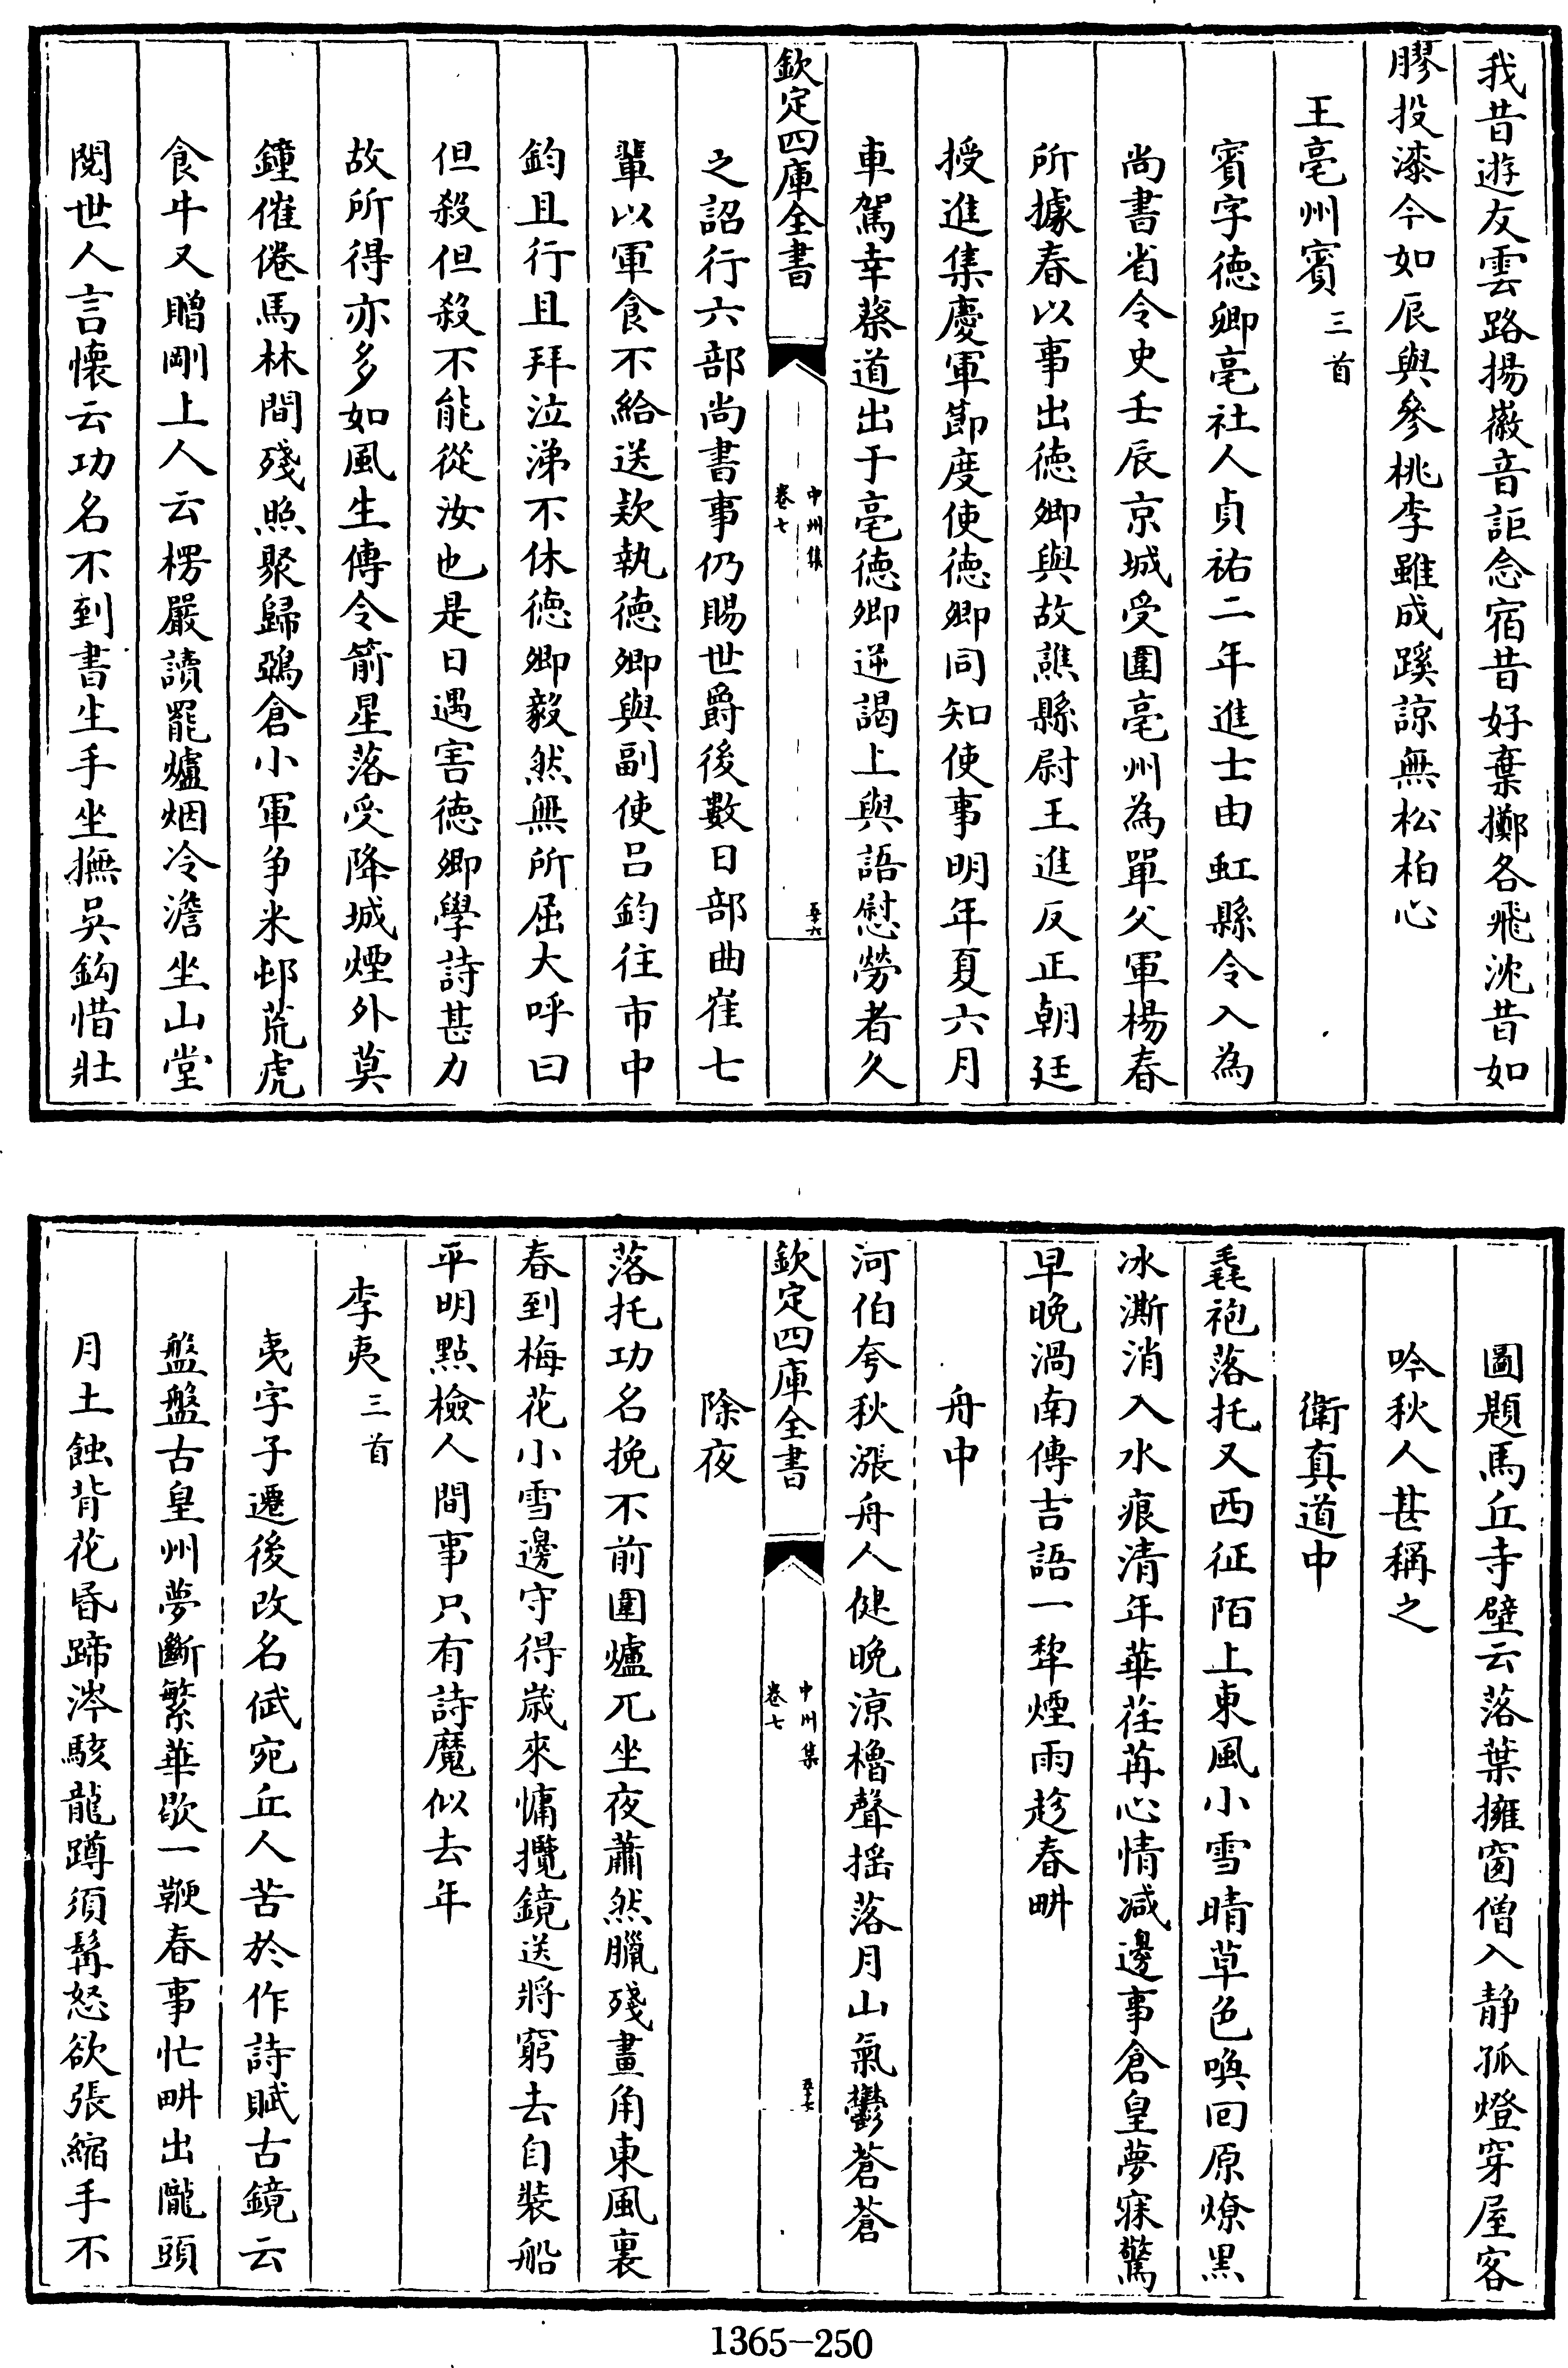 我昔遊友雲路揚徽音詎念宿昔好棄擲各飛沈昔如
膠投漆今如辰與參桃李雖成蹊諒無松柏心
王亳州賓三首
賓字德卿亳社人貞祐二年進士由虹縣令入為
尚書省令史壬辰京城受圍亳州為單父軍楊春
所據春以事出德卿與故譙縣尉王進反正朝廷
授進集慶軍節度使德卿同知使事明年夏六月
車駕幸蔡道出于亳德卿逆謁上與語慰勞者久
欽定四庫全書
中州集
卷七
五十六
之詔行六部尚書事仍賜世爵後數日部曲崔七
輩以軍食不給送款執德卿與副使呂鈞往市中
鈞且行且拜泣涕不休德卿毅然無所屈大呼曰
但殺但殺不能從汝也是日遇害德卿學詩甚力
故所得亦多如風生傳令箭星落受降城煙外莫
鐘催倦馬林間殘照聚歸鵶倉小軍争米邨荒虎
食牛又贈剛上人云楞嚴讀罷爐烟冷澹坐山堂
閱世人言懷云功名不到書生手坐撫吳鈎惜壯
圖題馬丘寺壁云落葉擁窗僧入静孤燈穿屋客
吟秋人甚稱之
衛真道中
毳袍落托又西征陌上東風小雪晴草色喚回原燎黑
冰澌消入水痕清年華荏苒心情减邊事倉皇夢寐驚
早晚渦南傳吉語一犂煙雨趁春畊
舟中
河伯夸秋漲舟人健晚涼櫓聲揺落月山氣鬱蒼蒼
欽定四庫全書
中州集
卷七
五十七
除夜
落托功名挽不前圍爐兀坐夜蕭然臘殘畫角東風裏
春到梅花小雪邊守得歲來慵攬鏡送將窮去自裝船
平明點檢人間事只有詩魔似去年
李夷三首
夷字子遷後改名侙宛丘人苦於作詩賦古鏡云
盤盤古皇州夢斷繁華歇一鞭春事忙畊出隴頭
月土蝕背花昏蹄涔駭龍蹲須髯怒欲張縮手不
1365-250